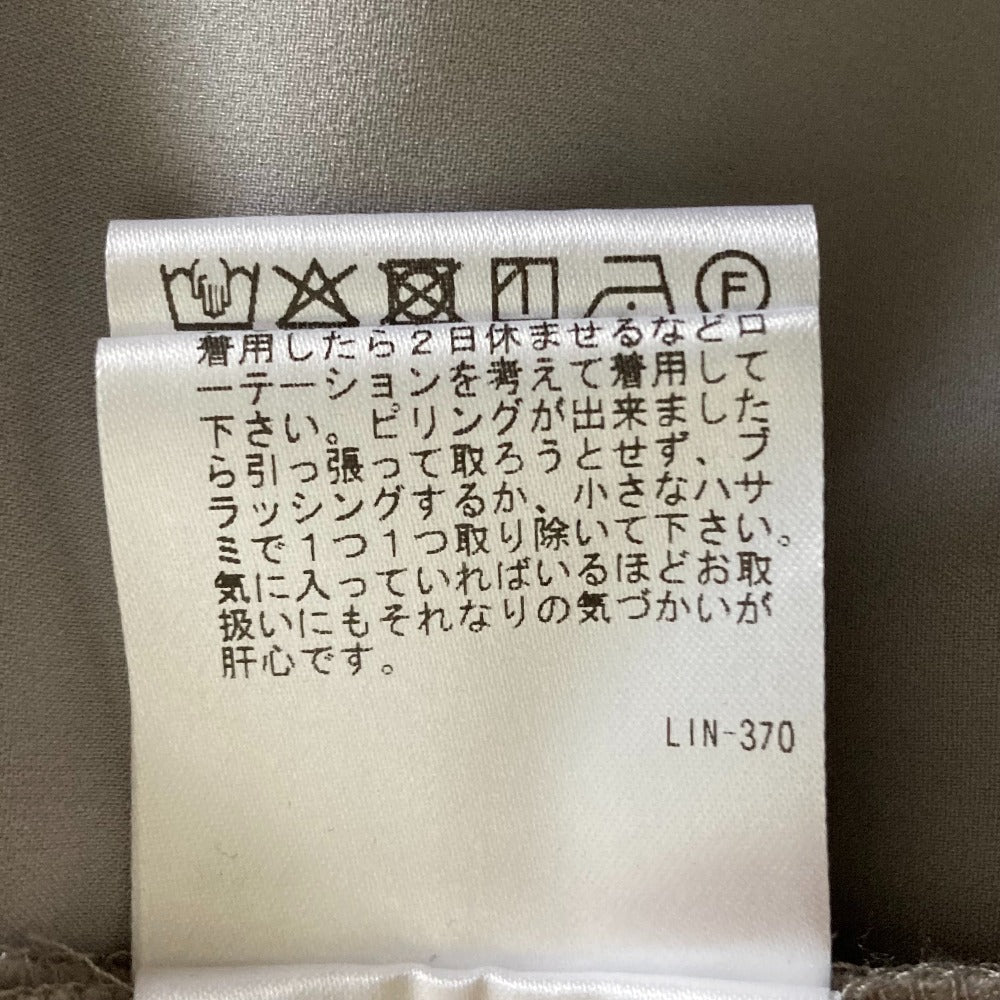 F
着用したら2日休ませるなどロ
ーテーションを考えて着用して
下さい。ピリングが出来ましたた
ら引っ張って取ろうとせず、ブ
ラッシングするか、小さなハサ
ミで1つ1つ取り除いて下さい。
気に入っていればいるほどお取
扱いにもそれなりの気づかいが
肝心です。
LIN-370